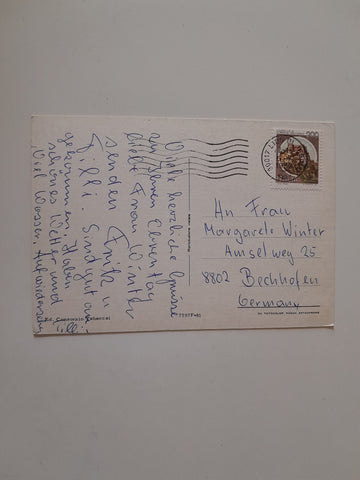 Viele herzliche Grüsse
zu Ihrem Ehrentag
liebe Frau Winter
senden Fritz u.
Tilli. Sind gut an-
gekommen, Haben
schönes Wetter und
Viel Wasser. Auf wiedersehn
An Frau
Margarete Winter
Amselweg 25
8802 Bechhofen
Germany